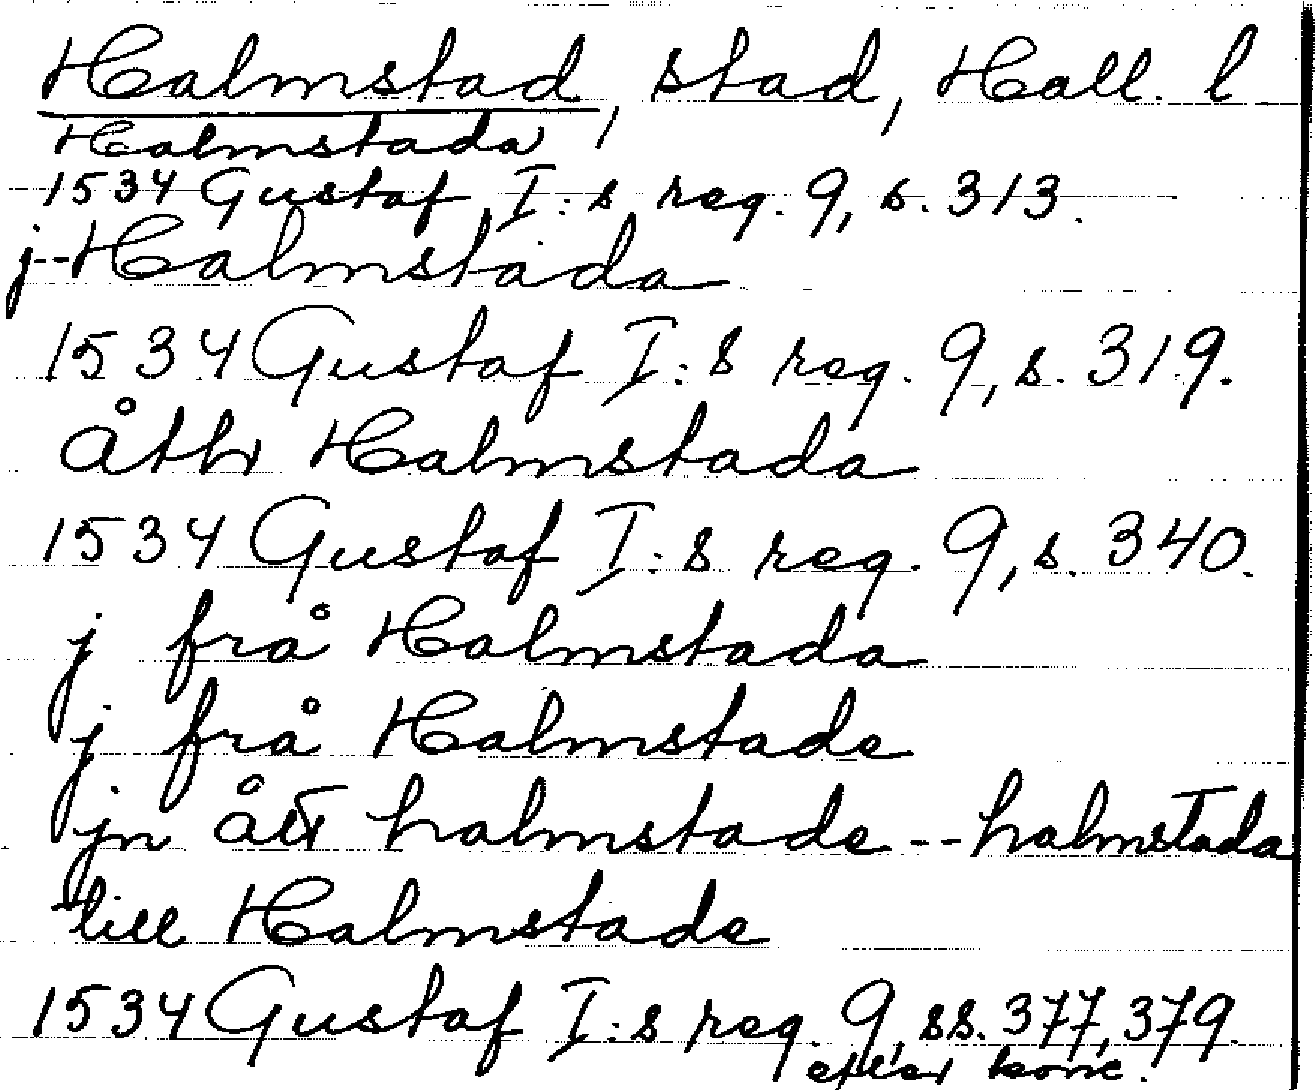 Halmstad, stad, Hall. l
Halmstada
1534 Gustaf I:s reg. 9, s. 313.
j--Halmstada
1534 Gustaf I:s reg. 9, s. 319.
åthr Halmstada
1534 Gustaf I:s reg. 9, s. 340.
j frå Halmstada
j frå Halmstade
jn ått halmstade--halmstada
till Halmstade
1534 Gustaf I:s reg. 9, ss. 377, 379.
efter konc.